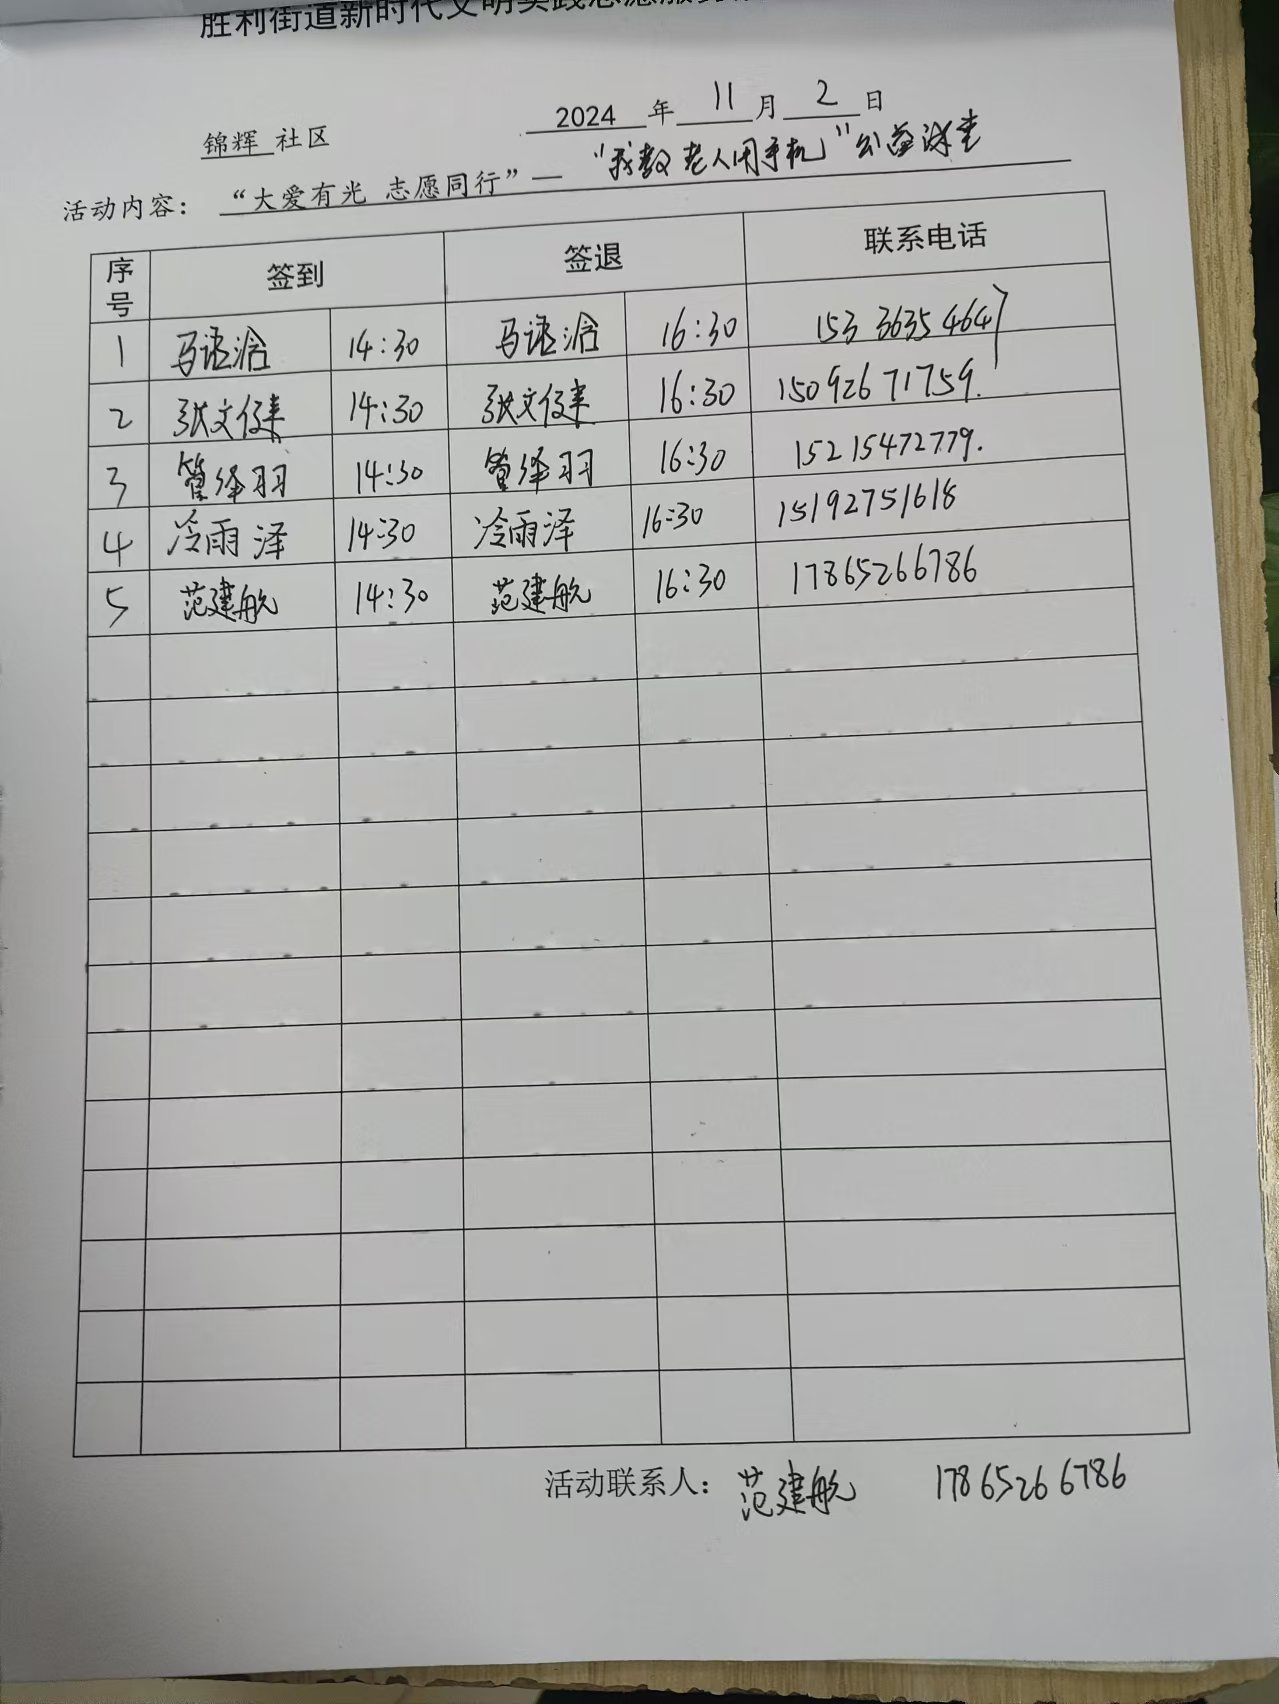 胜利街道新时代文明实践志愿服务
2024 年 11 月 2 日
锦辉 社区
活动内容： “大爱有光 志愿同行”— “我教老人用手机”公益课堂
序号 签到 签退 联系电话
1 马语涵 14:30 马语涵 16:30 153 3635 4647
2 张文俊 14:30 张文俊 16:30 15092671759.
3 管绎羽 14:30 管绎羽 16:30 15215472779.
4 冷雨泽 14:30 冷雨泽 16:30 15192751618
5 范建航 14:30 范建航 16:30 17865266786
活动联系人： 范建航 17865266786